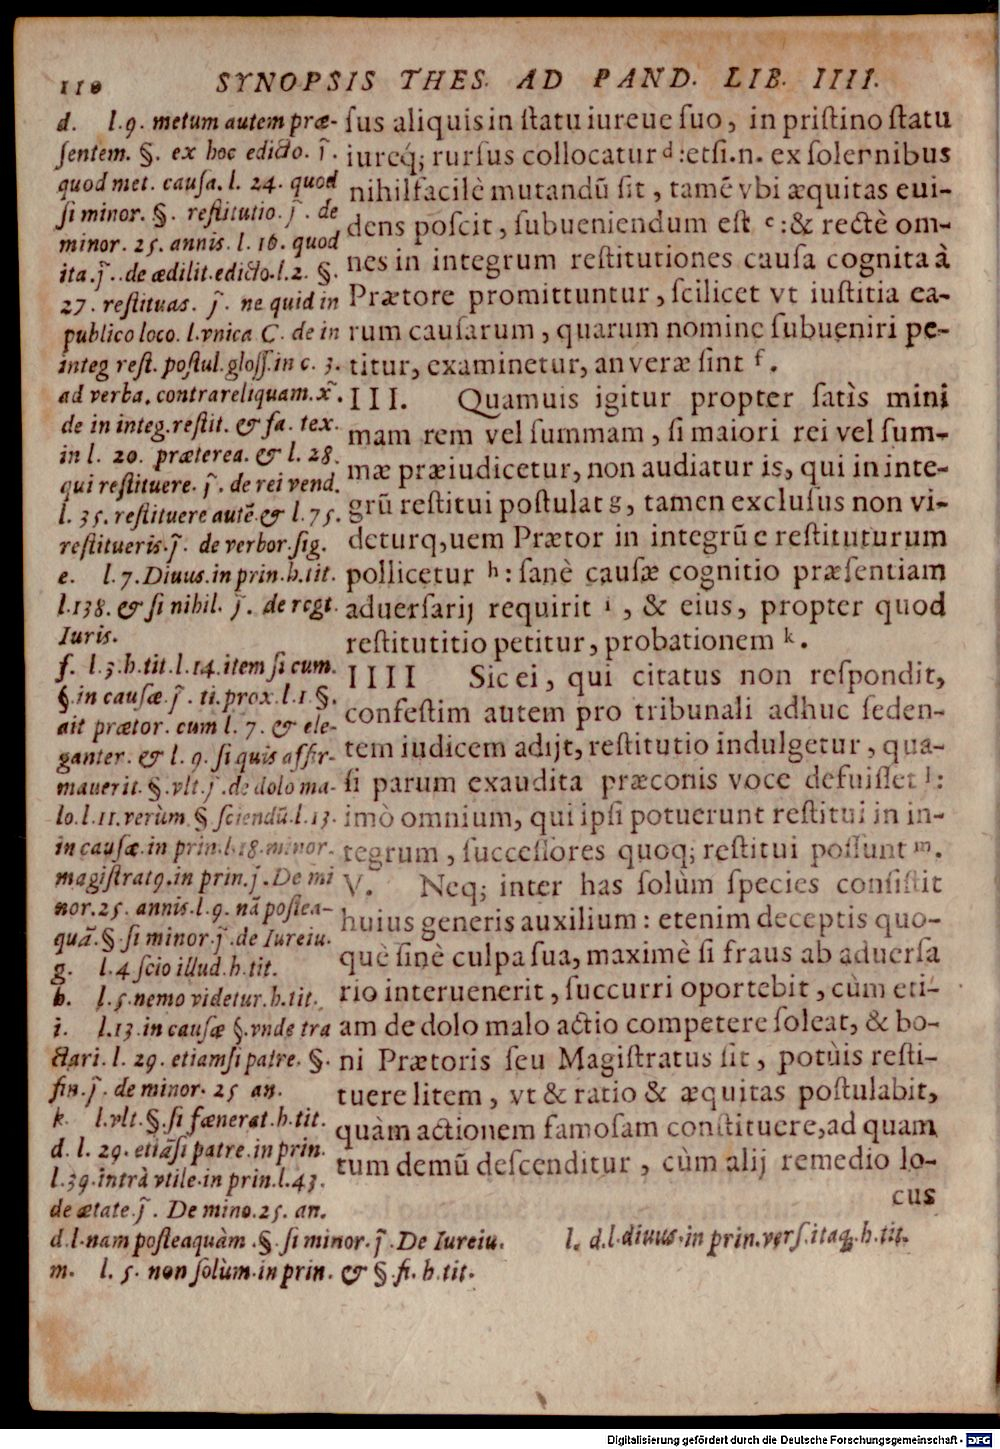 110 SYNOPSIS THES. AD PAND. LIB. IIII.
d. l.9. metum autem præ-
ſentem. §. ex hoc edicto. j̃.
quod met. cauſa. l. 24. quod
ſi minor. §. reſtitutio. j̃. de
minor. 25. annis. l. 16. quod
ita. j̃. de ædilit. edicto. l.2. §.
27. reſtituas. j̃. ne quid in
publico loco. l. vnica C. de in
integ reſt. poſtul. gloſſ. in c. 3.
ad verba. contrareliquam. x̃.
de in integ. reſtit. & fa. tex.
in l. 20. præterea. & l. 28.
qui reſtituere. j̃. de rei vend.
l. 35. reſtituere autẽ. & l. 75.
reſtitueris. j̃. de verbor. ſig.
e. l.7. Diuus. in prin. h. tit.
l.138. & ſi nihil. j̃. de regt.
Iuris.
f. l.3. h. tit. l.14. item ſi cum.
§. in cauſæ. j̃. ti. prox. l.1 §.
ait prætor. cum l. 7. & ele-
ganter. & l. 9. ſi quis affir-
mauerit. §. vlt. j̃. de dolo ma-
lo. l.11. verùm § ſciendũ. l.13.
in cauſæ. in prin. l.18. minor.
magiſtratꝰ. in prin. j̃. De mi
nor. 25. annis. l.9. nã poſtea-
quã. §. ſi minor. j̃. de Iureiu.
g. l.4 ſcio illud. h. tit.
h. l.5. nemo videtur. h. tit.
i. l.13. in cauſæ §. vnde tra
ctari. l. 29. etiamſi patre. §.
fin. j̃. de minor. 25 an.
k. l. vlt. §. ſi fœnerat. h. tit.
d. l. 29. etiãſi patre. in prin.
l.39. intrà vtile. in prin. l.43.
de ætate. j̃. De mino. 25. an.
d. l. nam poſteaquàm. §. ſi minor. j̃. De Iureiu.
m. l. 5. non ſolùm. in prin. & §. fi. h. tit.
ſus aliquis in ſtatu iureue ſuo, in priſtino ſtatu
iureq́; rurſus collocatur d : etſi. n. ex ſolennibus
nihil facilè mutandũ ſit, tamẽ vbi æquitas eui-
dens poſcit, ſubueniendum eſt e : & rectè om-
nes in integrum reſtitutiones cauſa cognita à
Prætore promittuntur, ſcilicet vt iuſtitia ea-
rum cauſarum, quarum nomine ſubueniri pe-
titur, examinetur, an veræ ſint f.
III. Quamuis igitur propter ſatìs mini
mam rem vel ſummam, ſi maiori rei vel ſum-
mæ præiudicetur, non audiatur is, qui in inte-
grũ reſtitui poſtulat g, tamen excluſus non vi-
deturq,uem Prætor in integrũ e reſtituturum
pollicetur h : ſanè cauſæ cognitio præſentiam
aduerſarij requirit i, & eius, propter quod
reſtitutitio petitur, probationem k.
IIII Sic ei, qui citatus non reſpondit,
confeſtim autem pro tribunali adhuc ſeden-
tem iudicem adijt, reſtitutio indulgetur, qua-
ſi parum exaudita præconis voce defuiſſet l :
imò omnium, qui ipſi potuerunt reſtitui in in-
tegrum, ſucceſſores quoq; reſtitui poſſunt m.
V. Neq; inter has ſolùm ſpecies conſiſtit
huius generis auxilium : etenim deceptis quo-
què ſinè culpa ſua, maximè ſi fraus ab aduerſa
rio interuenerit, ſuccurri oportebit, cùm eti-
am de dolo malo actio competere ſoleat, & bo-
ni Prætoris ſeu Magiſtratus ſit, potùis reſti-
tuere litem, vt & ratio & æquitas poſtulabit,
quàm actionem famoſam conſtituere, ad quam
tum demũ deſcenditur, cùm alij remedio lo-
cus
l. d. l. diuus. in prin. verſ. itaq; h. tit.
Digitalisierung gefördert durch die Deutsche Forschungsgemeinschaft - DFG